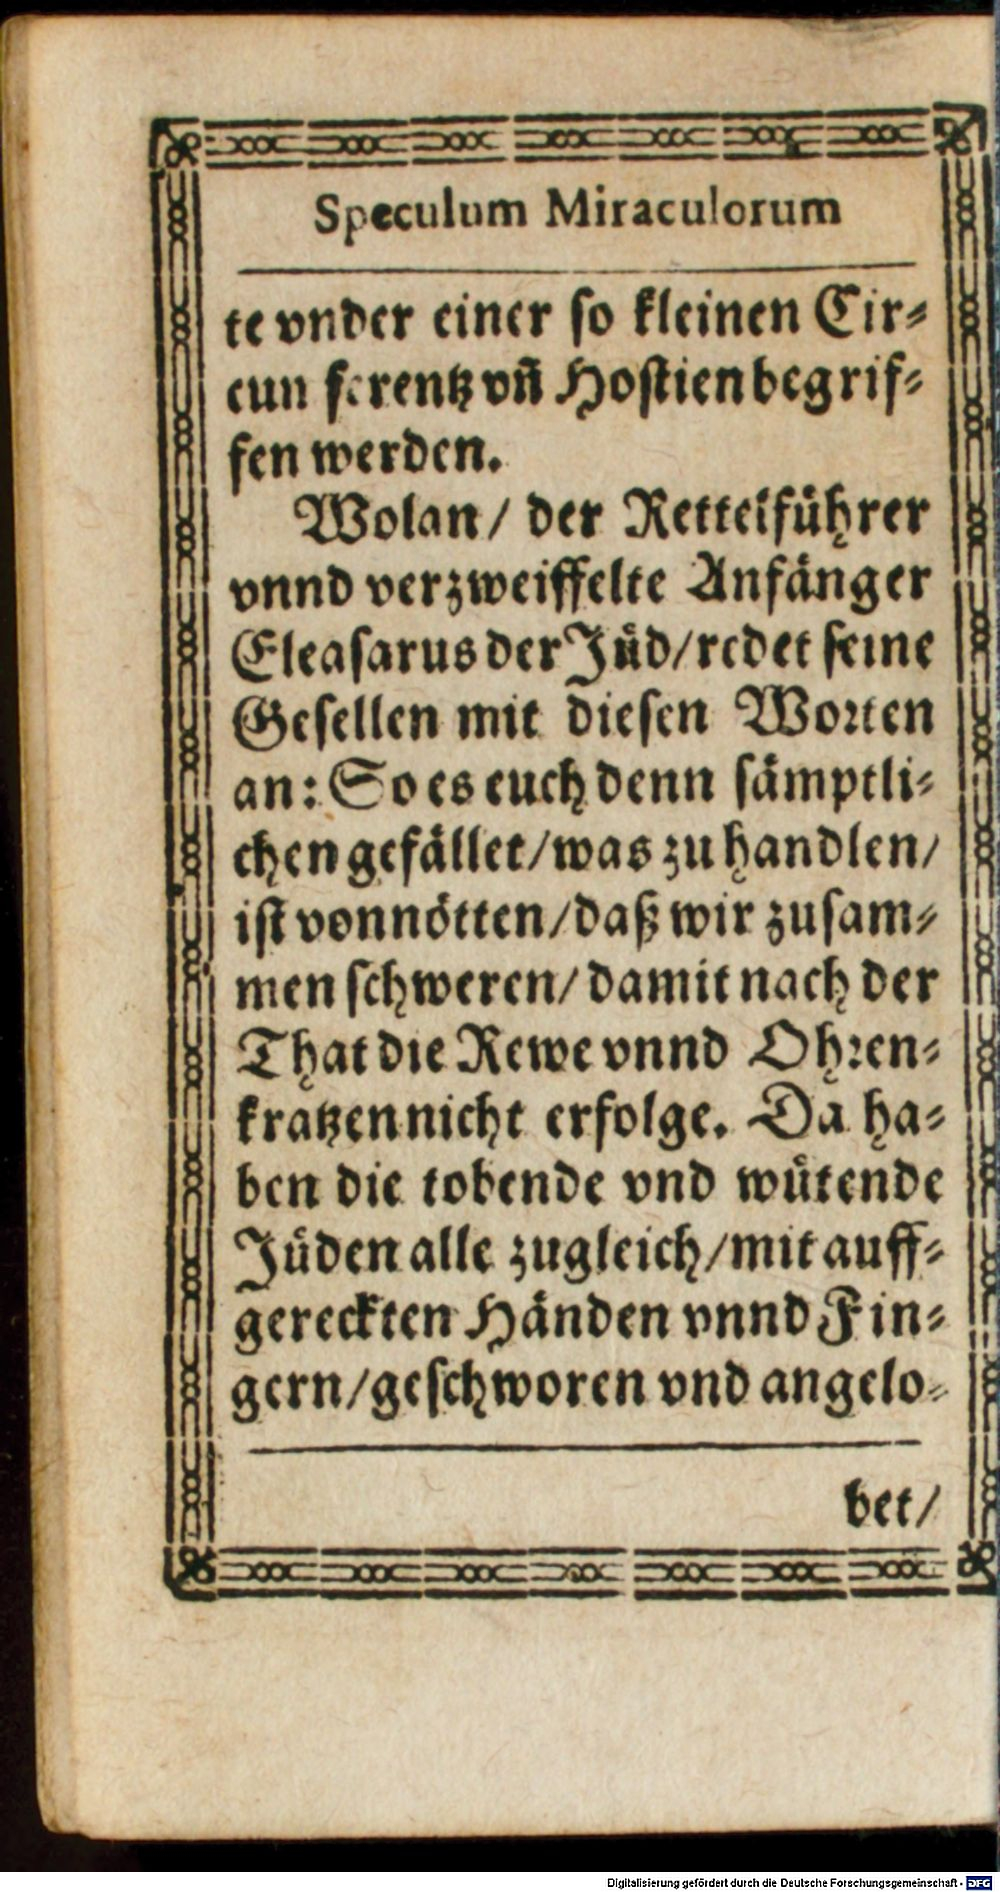 Speculum Miraculorum
te vnder einer so kleinen Cir⸗
cun ferentz vñ Hostien begrif⸗
fen werden.
Wolan/ der Rettelführer
vnnd verzweiffelte Anfänger
Eleasarus der Jüd/redet seine
Gesellen mit diesen Worten
an: So es euch denn sämptli⸗
chen gefället/was zu handlen/
ist vonnötten/daß wir zusam⸗
men schweren/damit nach der
That die Rewe vnnd Ohren⸗
kratzen nicht erfolge. Da ha⸗
ben die tobende vnd wütende
Jüden alle zugleich/mit auff⸗
gereckten Händen vnnd Fin⸗
gern/geschworen vnd angelo⸗
bet/
Digitalisierung gefördert durch die Deutsche Forschungsgemeinschaft - DFG